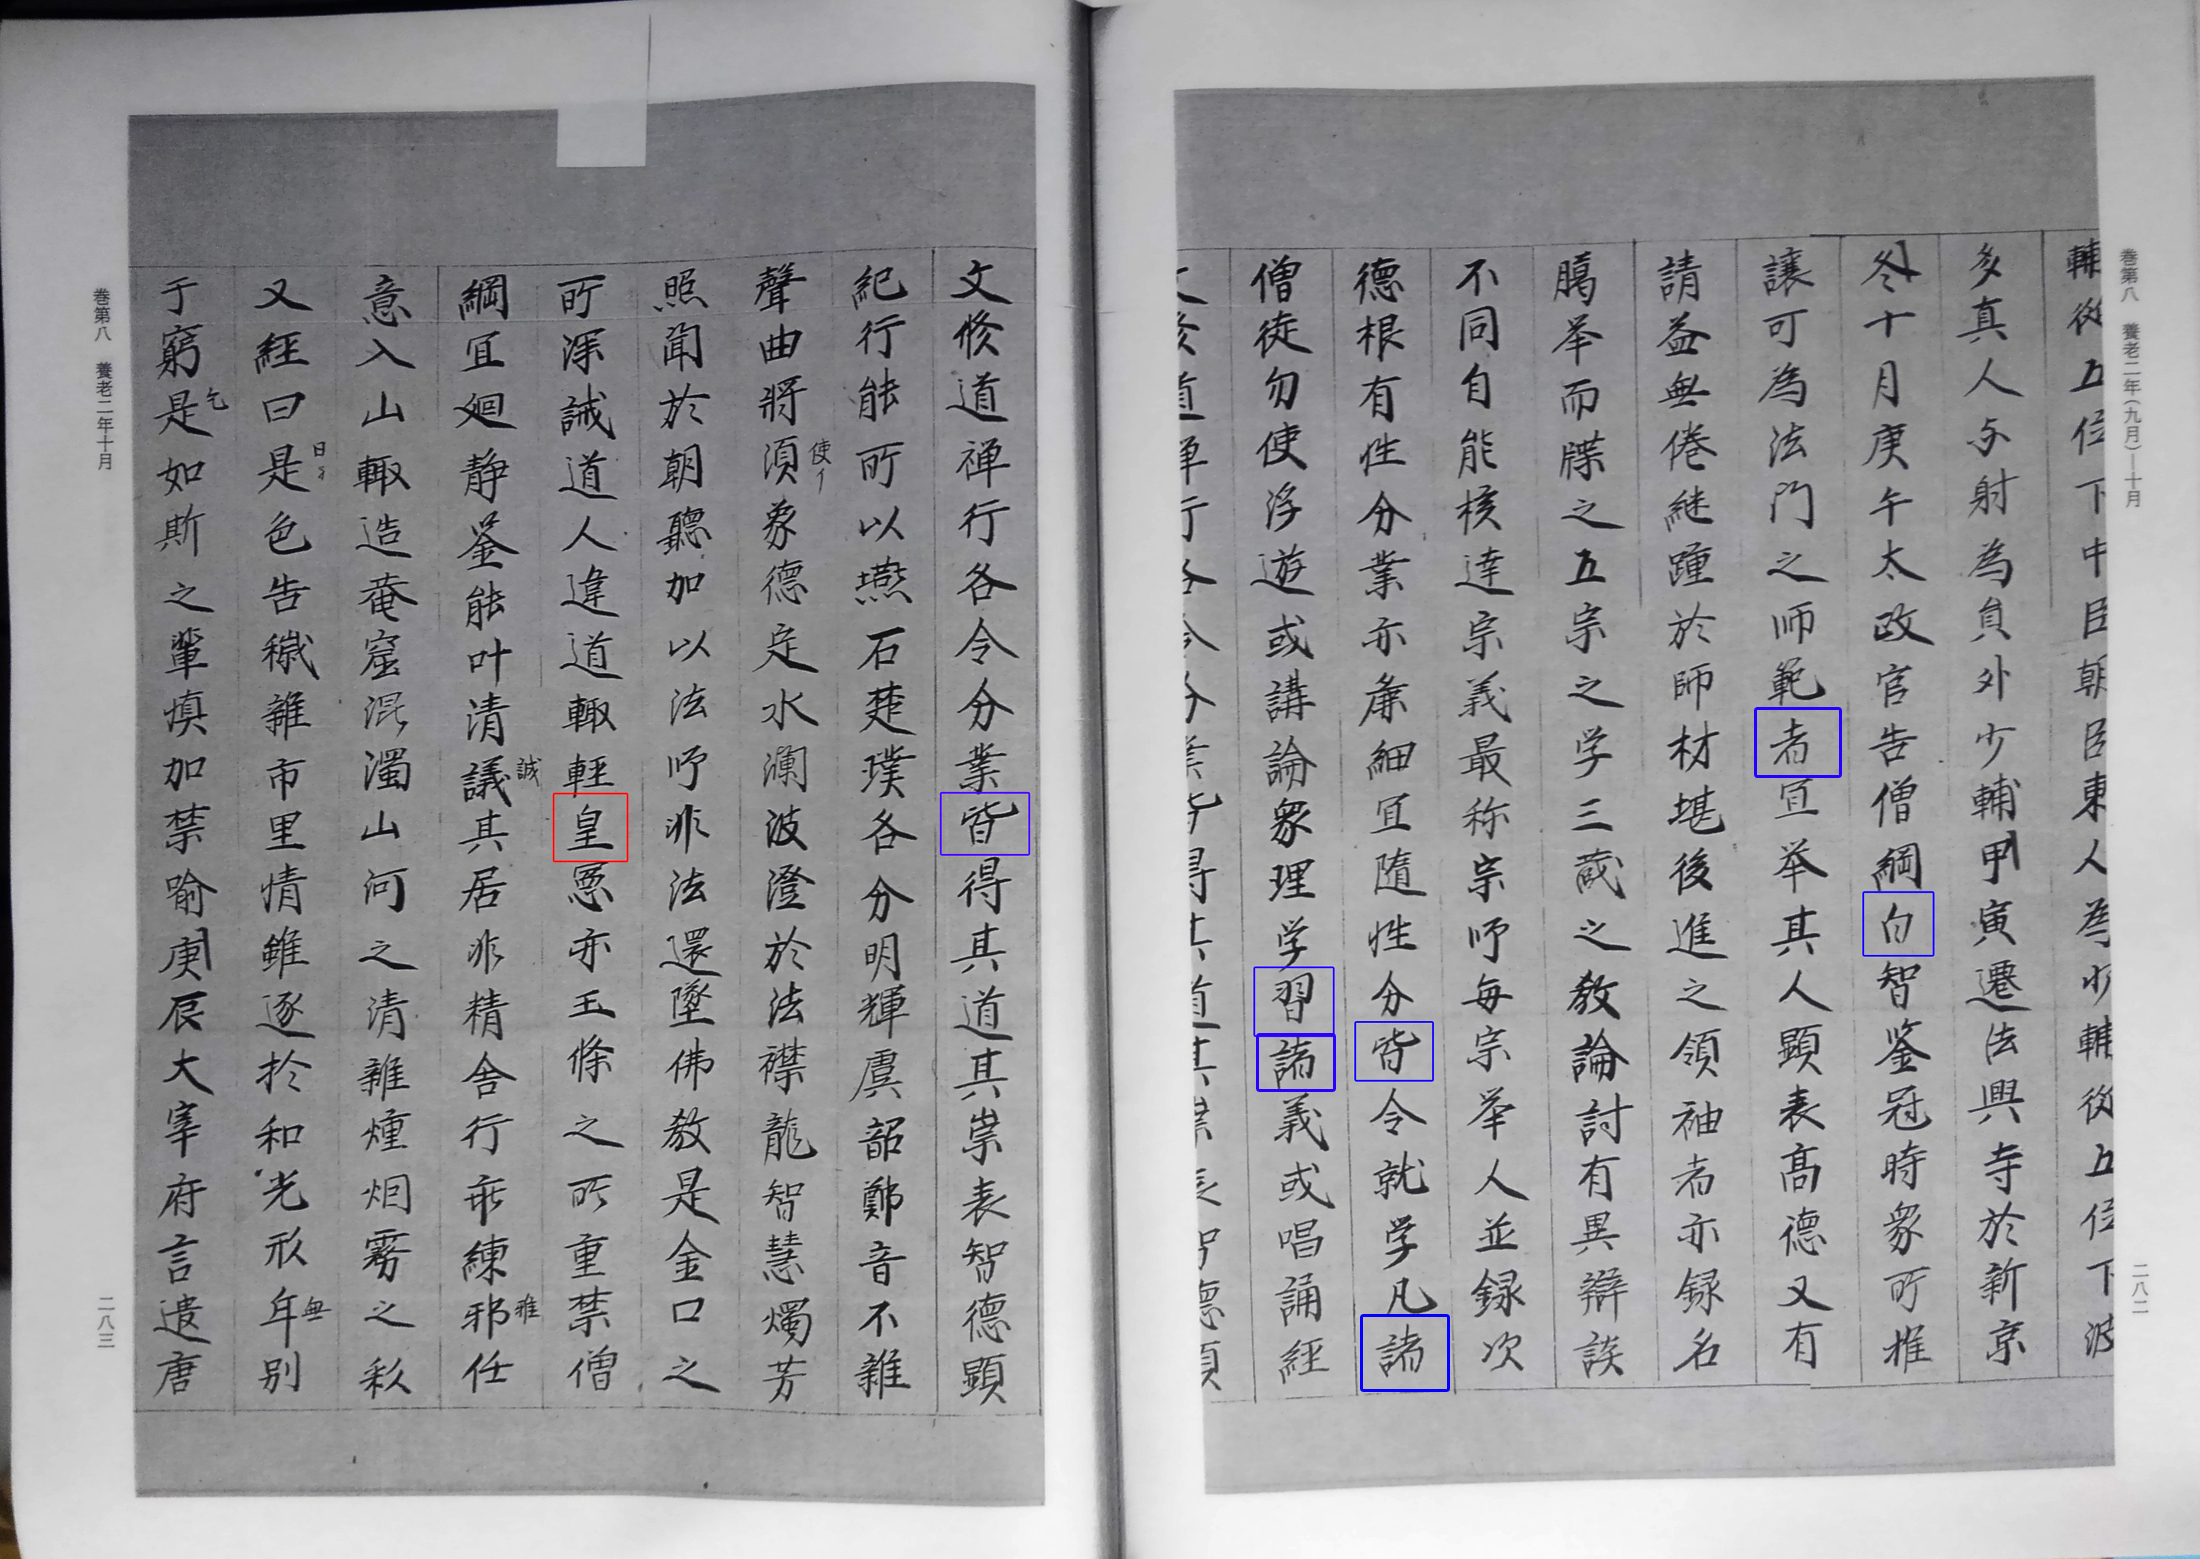 巻第八 養老二年(九月)―十月
二八二
輔從五位下中臣朝臣東人為少輔從五位下波
多真人与射為員外少輔甲寅遷法興寺於新京
冬十月庚午太政官告僧綱白智鉴冠時衆所推
讓可為法門之师範者冝举其人顯表髙德又有
請益無倦継踵於師材堪後進之領袖者亦録名
臈举而牒之五宗之学三蔵之教論討有異辯談
不同自能核達宗義最称宗师每宗举人並録次
德根有性分業亦麁細冝隨性分皆令就学凡諸
僧徒勿使浮遊或講論衆理学習諸義或唱誦経
文修道禅行各令分業皆得其道其崇表智德顯
文修道禅行各令分業皆得其道其崇表智德顯
紀行能所以燕石楚璞各分明輝虞韶鄭音不雜
聲曲將須象德定水瀾波澄於法襟龍智慧燭芳
使イ
照聞於朝聽加以法师非法還墜佛教是金口之
所深誡道人違道輙輕皇憲亦玉條之所重禁僧
綱冝廻静鉴能叶清議其居非精舎行乖練邪任
誠
雅
意入山輙造菴窟混濁山河之清雜燻烟霧之彩
又経曰是色告穢雜市里情雖逐於和光形年別
日々
無
于窮是如斯之輩慎加禁喻庚辰大宰府言遣唐
乞
巻第八 養老二年十月
二八三